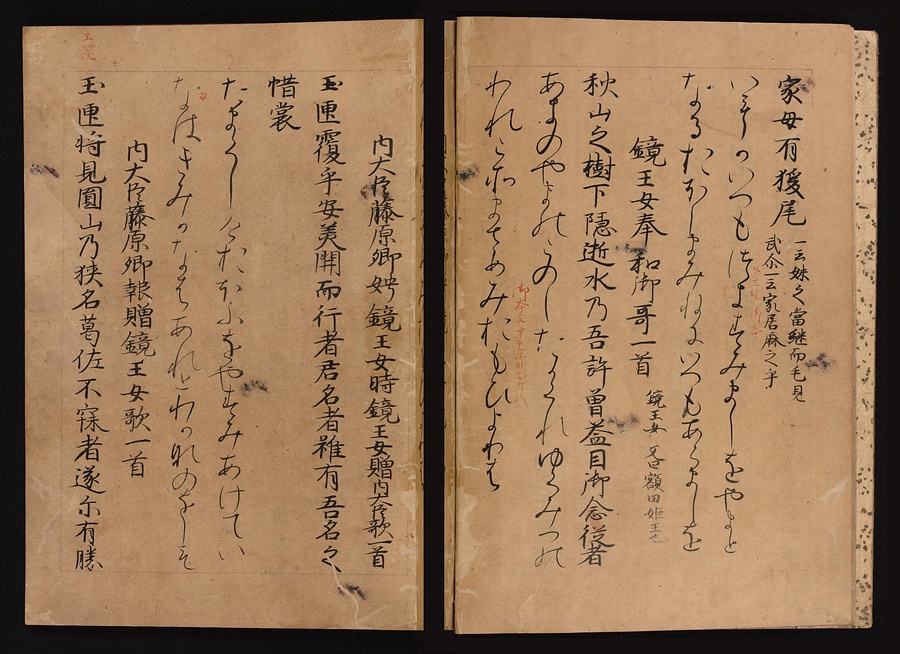 家母有獲尾 一云妹之當継而毛見
武尓一云家居麻之乎
いもかいへもつきてみましをやまと
なるおほしまみねにいへもあらましを
鏡王女奉和御哥一首 鏡王女又曰額田姫王也
秋山之樹下隠逝水乃吾許曽益目御念従者
あきのやまのこのしたかくれゆくみつの
われこそまさめみおもひよりは
内大臣藤原卿娉鏡王女時鏡王女贈内大臣歌一首
玉匣覆乎安美開而行者君名者雖有吾名之
惜裳
たまくしけおほふをやすみあけてい
なはきみかなはあれとわかなのをしも
内大臣藤原卿報贈鏡王女歌一首
玉匣将見圓山乃狭名葛佐不寐者遂尓有勝